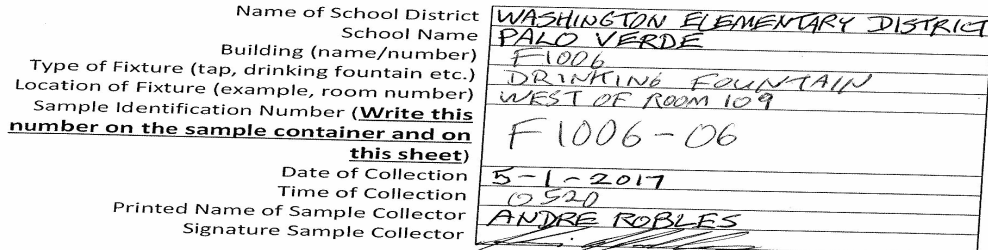 Name of School District WASHINGTON ELEMENTARY DISTRICT
School Name PALO VERDE
Building (name/number) F1006
Type of Fixture (tap, drinking fountain etc.) DRINKING FOUNTAIN
Location of Fixture (example, room number) WEST OF ROOM 109
Sample Identification Number (Write this
number on the sample container and on
this sheet) F1006-06
Date of Collection 5-1-2017
Time of Collection 0520
Printed Name of Sample Collector ANDRE ROBLES
Signature Sample Collector